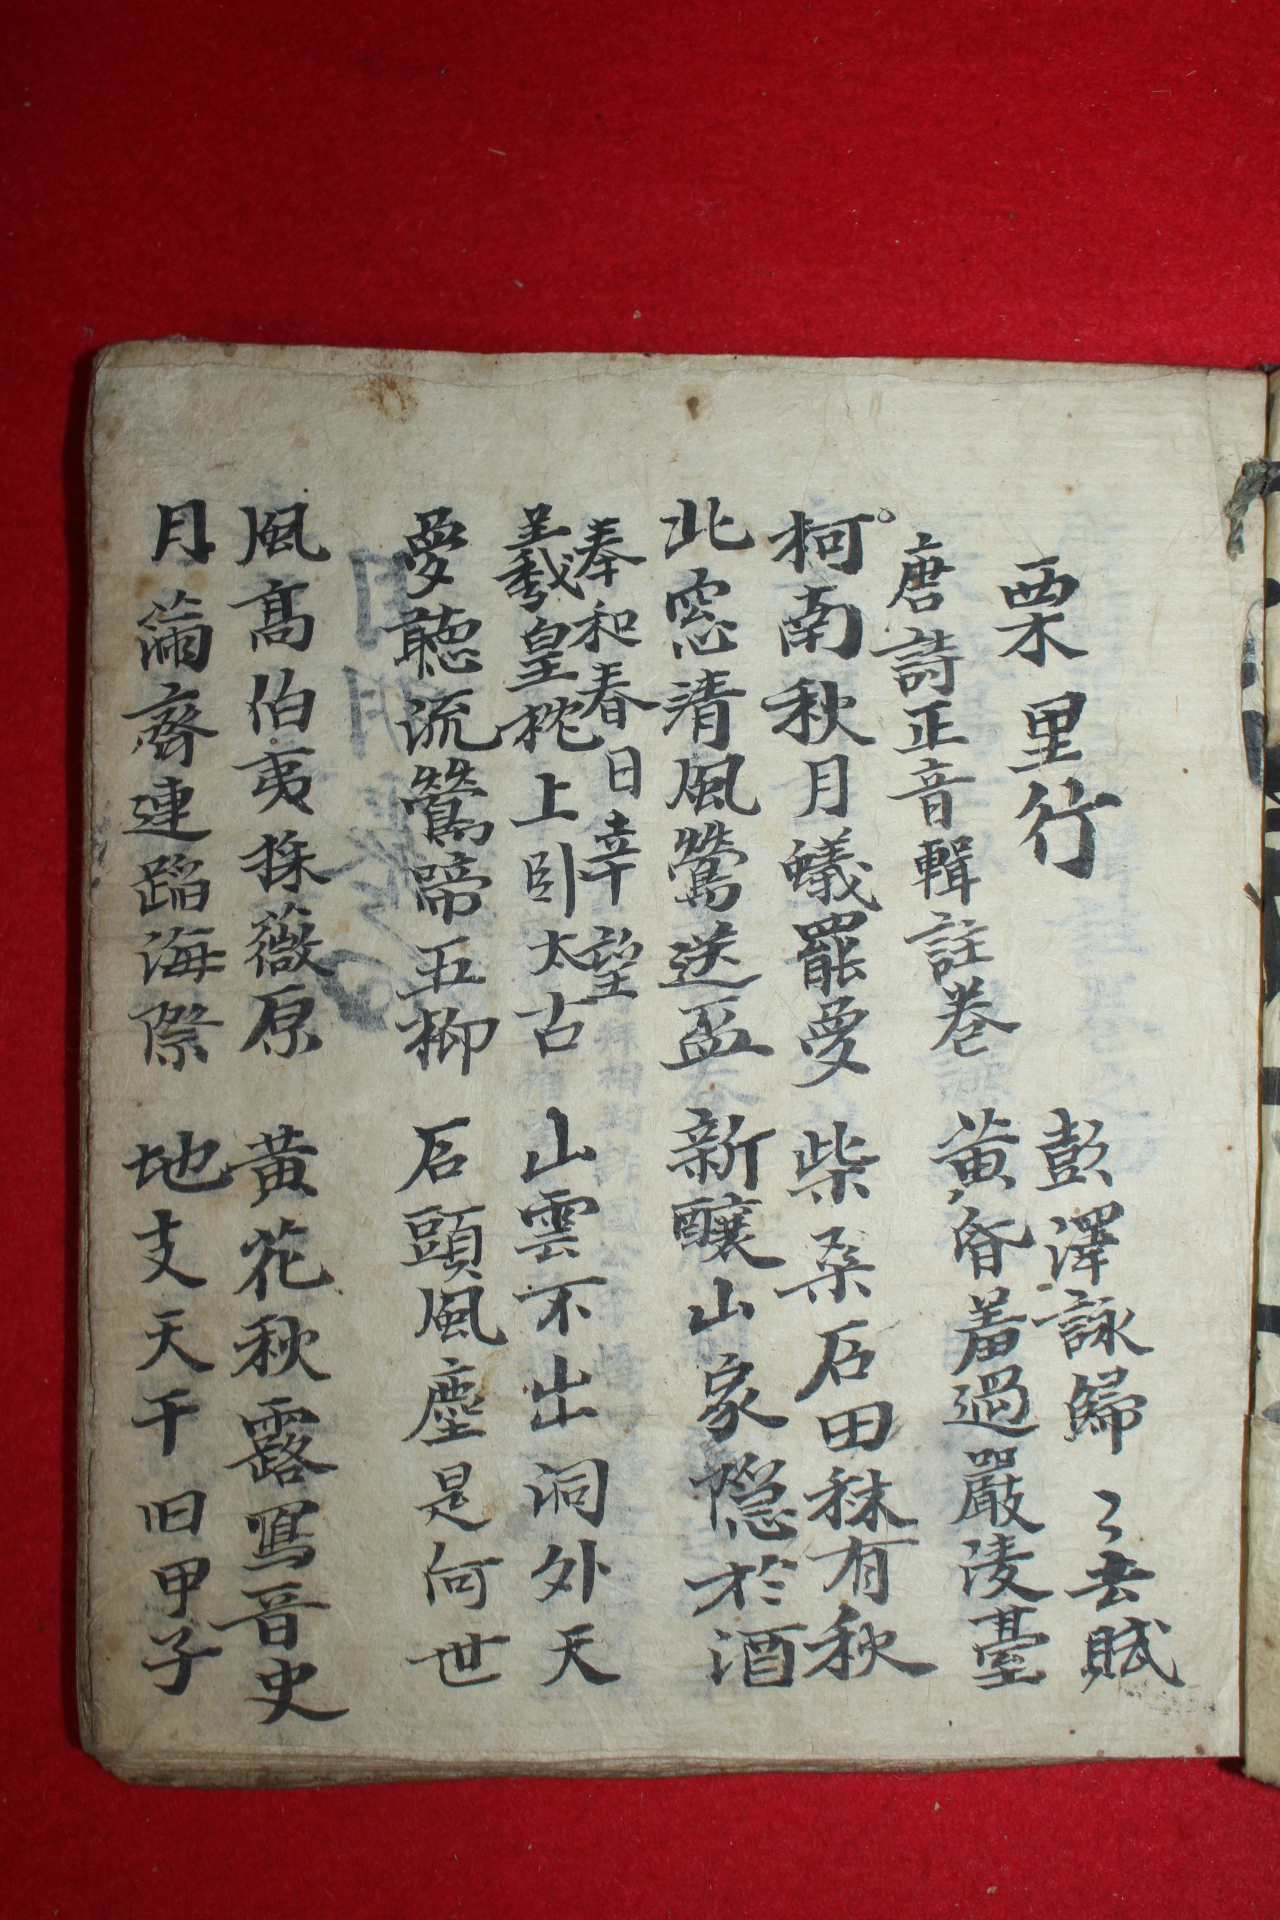 栗里行 彭澤詠歸〻去賦
唐詩正音輯註卷 黃昏羞過嚴陵臺
柯南秋月蟻罷夢 柴桑石田秫有秋
北窓清風鶯送盃 新釀山家隐於酒
奉和春日幸望
羲皇枕上臥太古 山雲不出洞外天
夢聽流鶯啼五柳 石頭風塵是何世
風高伯夷採薇原 黃花秋露寫晋史
月滿齊連蹈海際 地支天干旧甲子